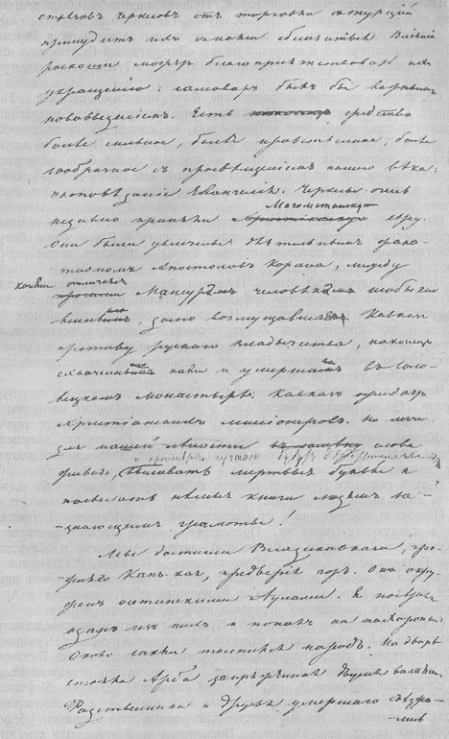 Черкесовъ отъ торговли съ Турціей
принудитъ ихъ съ нами сблизиться. Вліяніе
роскоши можетъ благопріятствовать ихъ
укрощенію: самоваръ былъ бы важнымъ
нововведеніемъ. Есть средство
болѣе сильное, болѣе нравственное, болѣе
сообразное съ просвѣщеніемъ нашего вѣка:
проповѣданіе Евангелія. Черкесы очень
недавно приняли Магометанскую вѣру.
Они были увлечены дѣятельнымъ фана-
тизмомъ Апостоловъ Корана, между
коими отличался Мансуръ человѣкъ необыкно
венный, долго возмущавшій Кавказъ
противу русскаго владычества, наконецъ
схваченный нами и умершій въ Соло-
вецкомъ монастырѣ. Кавказъ
Христіанскихъ миссіонеровъ. Но легче
для нашей лѣности слова
выливать мертвыя буквы и
посылать нѣмыя книги людямъ не-
знающимъ грамоты!
Мы достигли Владикавказа, пре-
жняго Капъ-кая, преддверія горъ. Онъ окру-
женъ осетинскими Аулами. Я посѣтилъ
одинъ изъ нихъ и попалъ на похороны.
Около сакли толпился народъ. На дворѣ
стояла Арба запряженная двумя волами.
Родственники и друзья умершаго съѣзжа-
лись